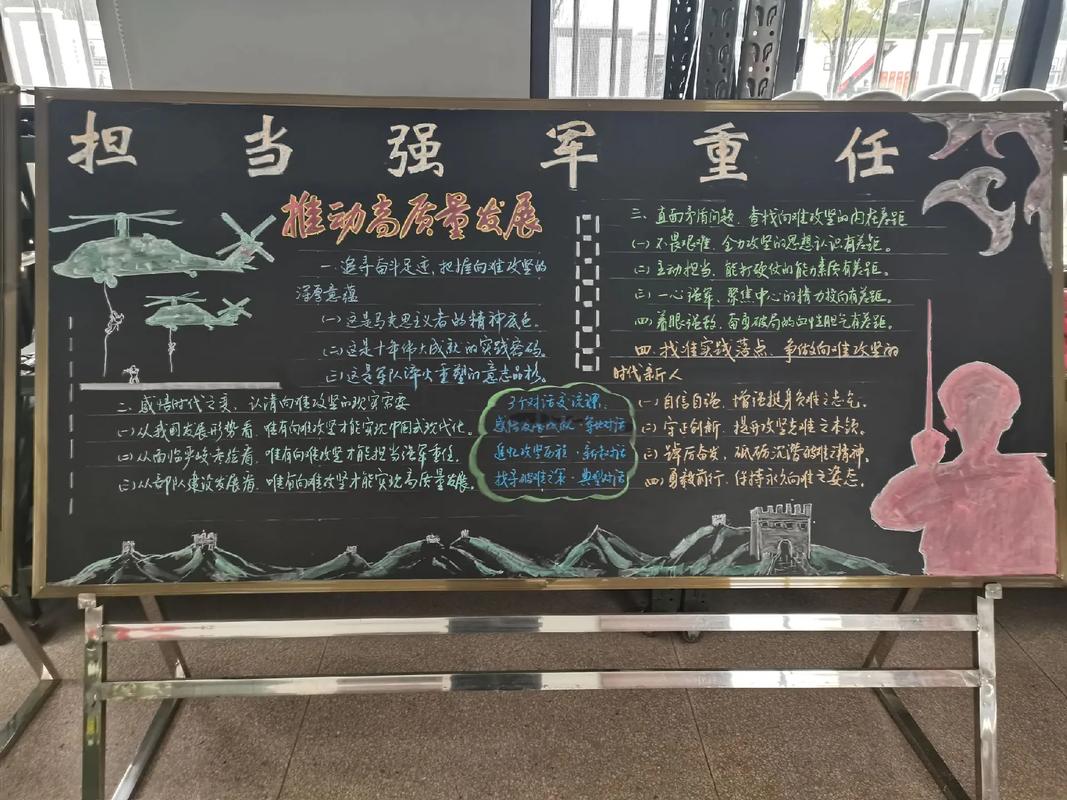 担当强军重任
推动高质量发展
一.追寻奋斗足迹,把握向难攻坚的
深厚意蕴
(一)这是马克思主义者的精神底色。
(二)这是十年伟大成就的实践密码。
(三)这是军队淬火重塑的意志品格。
二.感悟时代之变,认清向难攻坚的现实需要
(一)从我国发展形势看,唯有向难攻坚才能实现中国式现代化。
(二)从面临严峻考验看,唯有向难攻坚才能担当强军重任。
(三)从部队建设发展看,唯有向难攻坚才能实现高质量发展。
3个对话交流课:
追忆攻坚历程·
·典型对话
三、直面矛盾问题、查找向难攻坚的内在差距
(一)不畏艰难、全力攻坚的思想认识有差距。
(二)主动担当、能打硬仗的能力素质有差距。
(三)一心强军、聚焦中心的精力投向有差距。
(四)着眼强敌、奋勇破局的血性胆气有差距。
四.找准实践落点,争做向难攻坚的
时代新人
(一)自信自强,增强挺身负难之志气。
(二)守正创新,提升攻坚克难之本领。
(三)踔厉奋发,砥砺沉潜破难之精神。
(四)勇毅前行,保持永久向难之姿态。